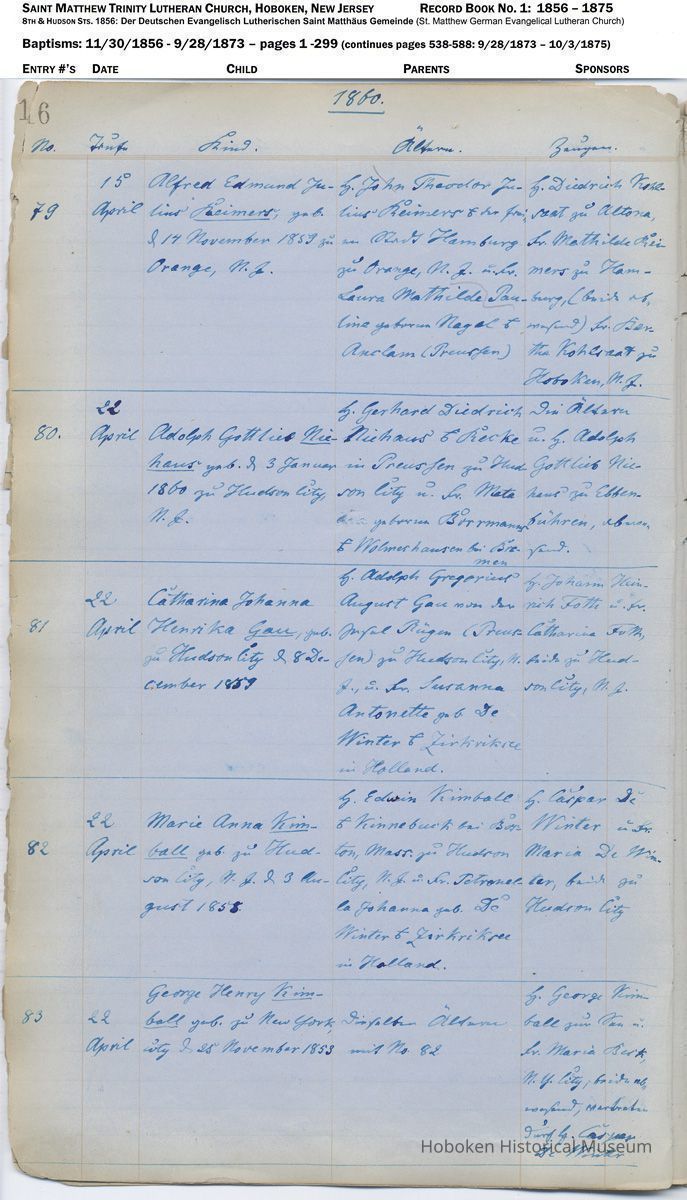 SAINT MATTHEW TRINITY LUTHERAN CHURCH, HOBOKEN, NEW JERSEY RECORD BOOK NO. 1: 1856 – 1875
8TH & HUDSON STS. 1856: Der Deutschen Evangelisch Lutherischen Saint Matthäus Gemeinde (St. Matthew German Evangelical Lutheran Church)
Baptisms: 11/30/1856 - 9/28/1873 – pages 1 -299 (continues pages 538-588: 9/28/1873 – 10/3/1875)
ENTRY #'S DATE CHILD PARENTS SPONSORS
16
1860.
No. Taufe Kind. Ältern. Zeugen.
79
15
April
Alfred Edmund Ju-
lius Reimers, geb.
d 14 November 1859 zu
Orange, N. J.
H. John Theodor Ju-
lius Reimers
Stadt Hamburg
zu Orange, N. J. u. Fr.
Laura Mathilde Pau-
lina geboren Nagel
Anclam (Preussen)
H. Diedrich Kohl-
saat zu Altona,
Fr. Mathilde Rei-
mers zu Ham-
burg, (beide ab-
wesend) Fr. Ber-
tha Kohlsaat zu
Hoboken, N. J.
80.
22
April
Adolph Gottlieb Nie-
haus geb. d 3 Januar
1860 zu Hudson City,
N. J.
H. Gerhard Diedrich
Niehaus Recke
in Preussen zu Hud
son City u. Fr. Meta
geboren Borrmann
Wolmershausen bei Bre-
men
Die Ältern
u. H. Adolph
Gottlieb Nie-
haus zu Ibben-
bühren, abwe-
send.
81
22
April
Catharina Johanna
Henrika Gau, geb.
zu Hudson City d 8 De-
cember 1859
H. Adolph Gregorius
August Gau von der
Insel Rügen (Preus-
sen) zu Hudson City, N.
J., u. Fr. Susanna
Antonette geb. De
Winter Zirkriksee
in Holland.
H. Johann Hein-
rich Foth u. Fr.
Catharina Foth,
beide zu Hud-
son City, N. J.
82
22
April
Marie Anna Kim-
ball geb. zu Hud-
son City, N. J. d 3 Au-
gust 1858
H. Edwin Kimball
Kinnebuck bei Bos-
ton, Mass. zu Hudson
City, N. J. u. Fr. Petronel-
la Johanna geb. De
Winter Zirkriksee
in Holland.
H. Caspar De
Winter u. Fr.
Maria De Win-
ter, beide zu
Hudson City
83
22
April
George Henry Kim-
ball geb. zu New York
City d 25 November 1853
Dieselben Ältern
mit No. 82
H. George Kim-
ball zur See u.
Fr. Maria
N. Y. City, beide ab-
wesend, vertreten
durch H. Caspar
De Winter
Hoboken Historical Museum